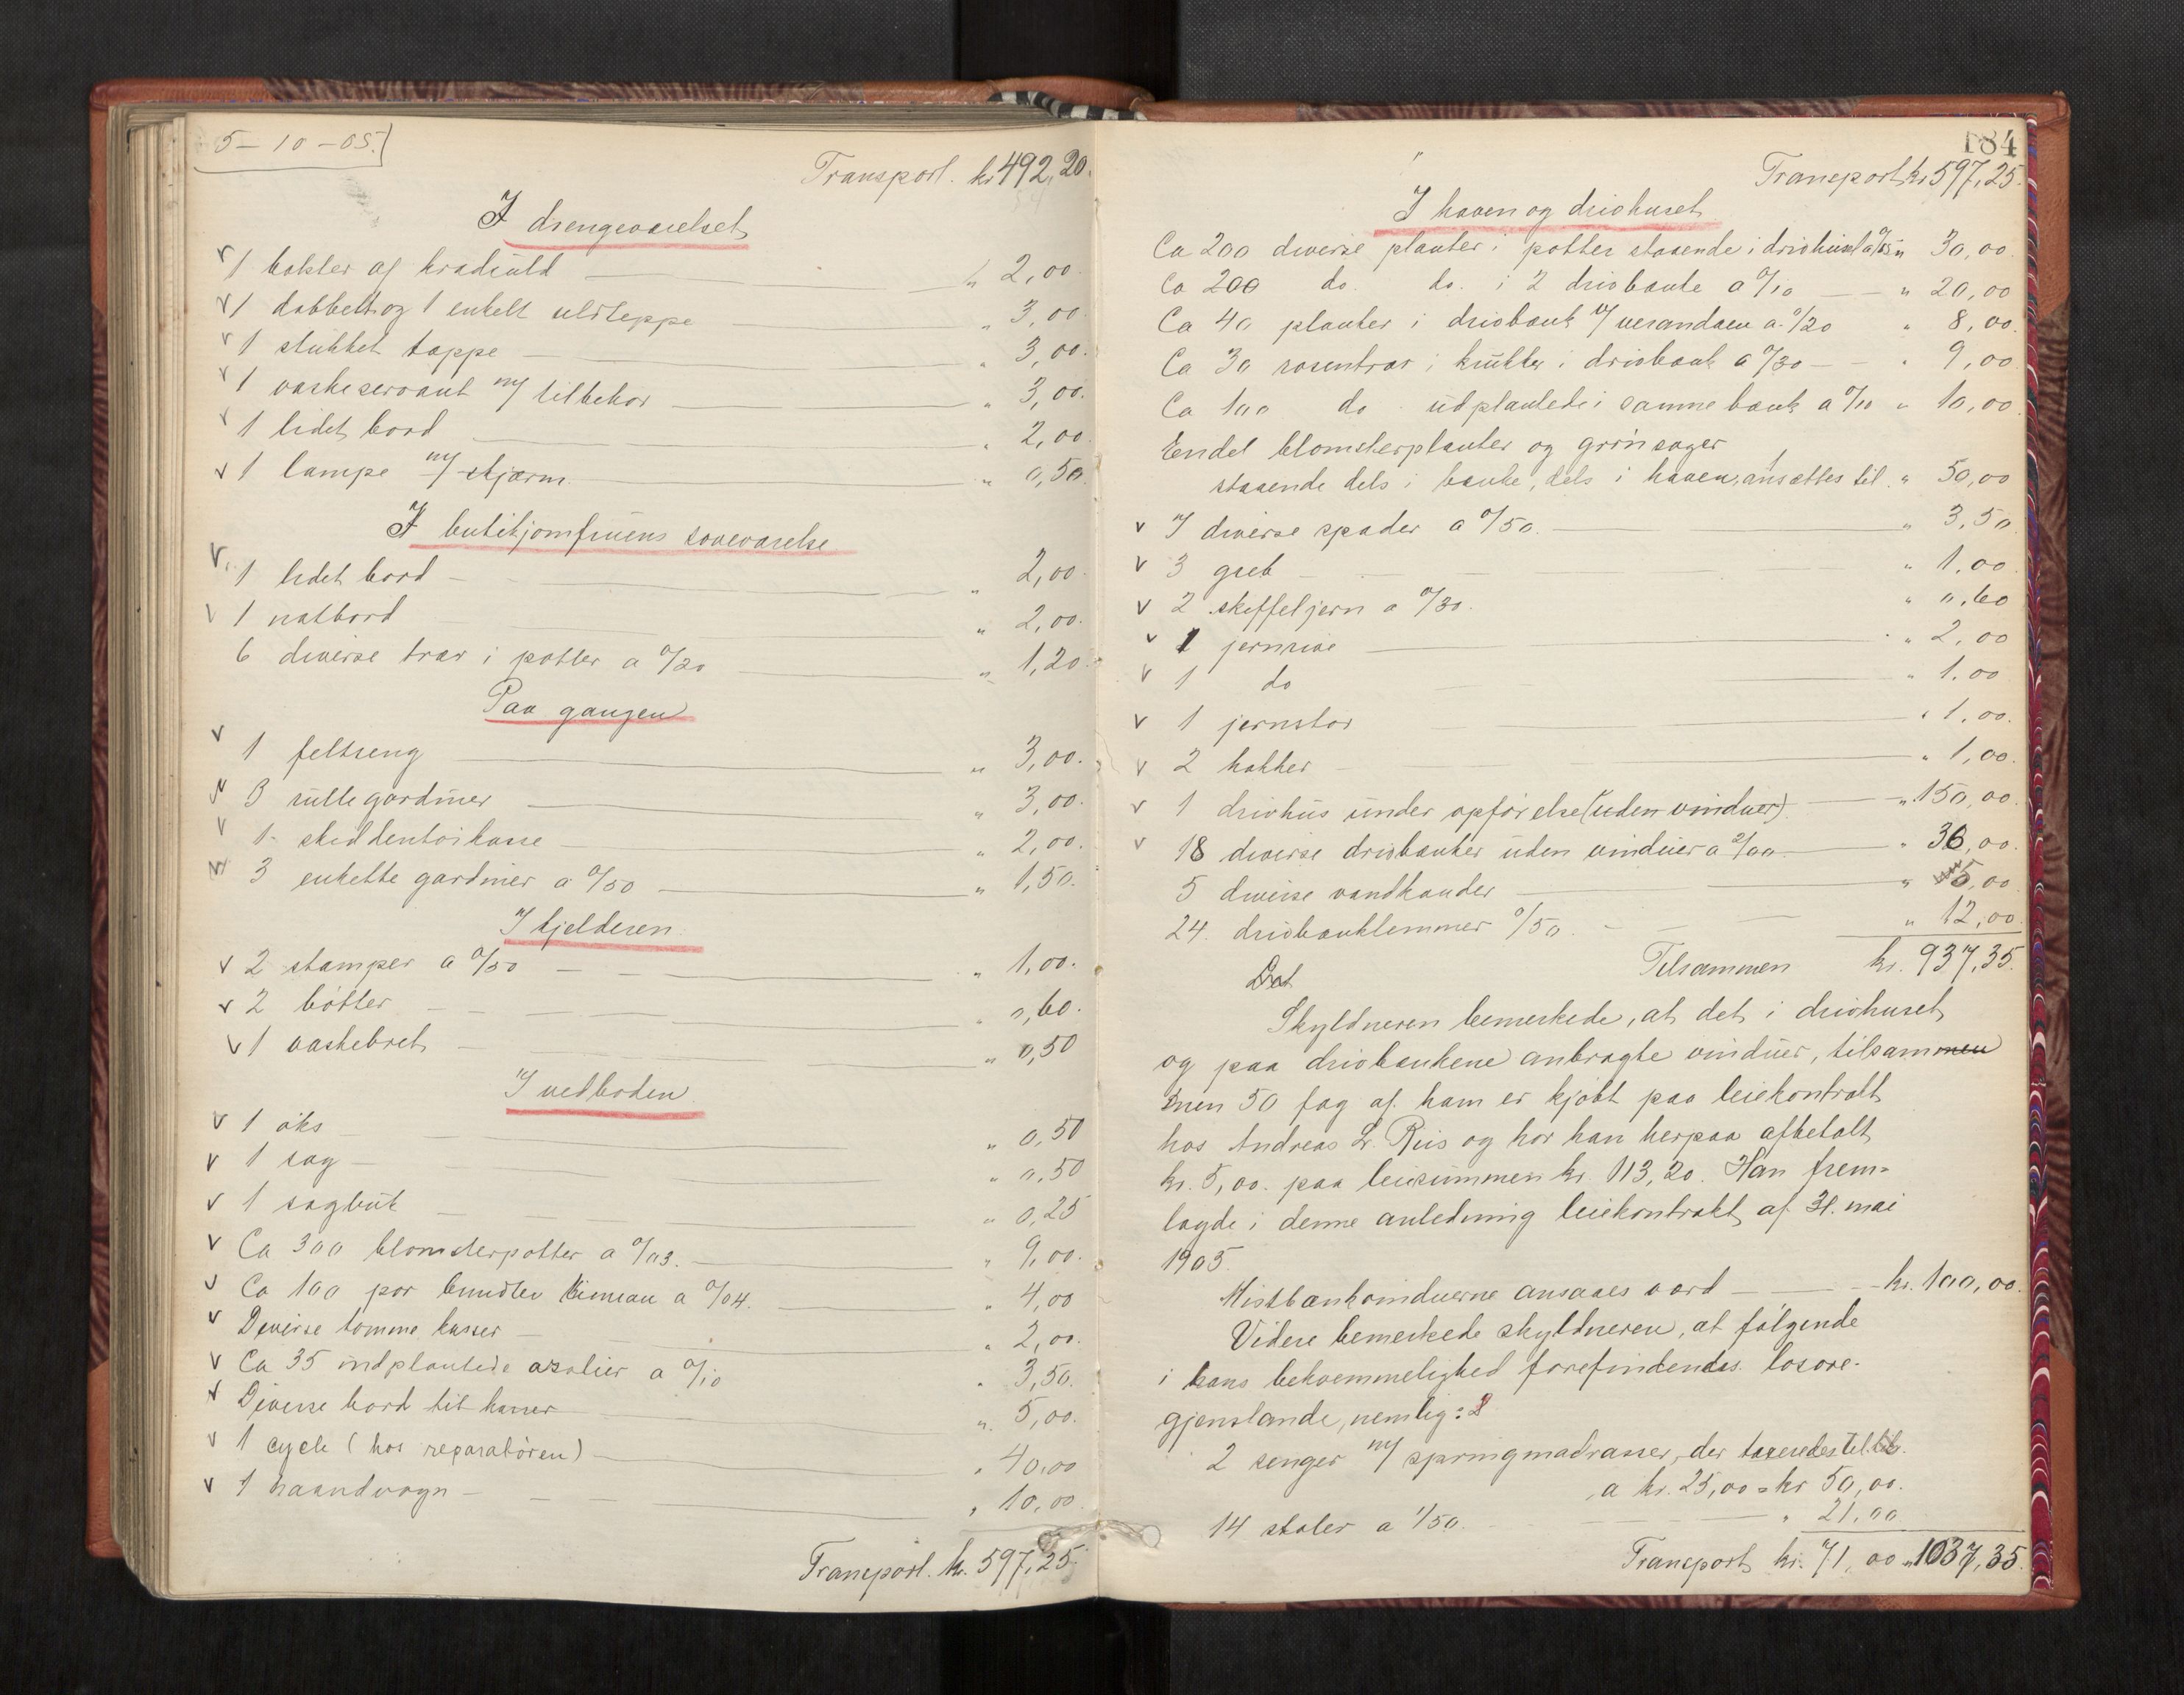 5-10-05.
Transport. kr 492,20.
I drengeværelset
v 1 bolster af kraduld — „ 2,00.
v 1 dobbelt og 1 enkelt uldteppe — „ 3,00.
v 1 stukket tæppe — „ 3,00.
v 1 vaskeservant m/ tilbehør — „ 3,00.
v 1 lidet bord — „ 2,00.
v 1 lampe m/ skjærm — „ 0,50.
I butikjomfruens soveværelse
v 1 lidet bord — „ 2,00.
v 1 natbord — „ 2,00.
6 diverse trær i potter a 0/20 — „ 1,20.
Paa gangen
v 1 feltseng — „ 3,00.
v 3 rullegardiner — „ 3,00.
v 1 skiddentøikasse — „ 2,00.
v 3 enkelte gardiner a 0/50 — „ 1,50.
I kjelderen.
v 2 stamper a 0/50 — „ 1,00.
v 2 bøtter — „ 0,60.
v 1 vaskebret — „ 0,50
I vedboden.
v 1 øks — „ 0,50
v 1 sag — „ 0,50
v 1 sagbuk — „ 0,25
v Ca 300 blomsterpotter a 0/03. — „ 9,00.
v Ca 100 par bundter a 0/04. — „ 4,00
v Diverse tomme kasser — „ 2,00.
v Ca 35 indplantede azalier a 0/10 „ 3,50.
v Diverse bord til kasser — „ 5,00.
v 1 cycle (hos reparatøren) — „ 40,00
v 1 haandvogn — „ 10,00.
Transport. kr. 597,25.
184
Transport kr. 597,25.
I haven og drivhuset
Ca 200 diverse planter i potter staaende i drivhuset a 0/15 „ 30,00.
Ca 200 do. do. i 2 drivbænke a 0/10 — „ 20,00
Ca 40 planter i drivbænk v/ verandaen a 0/20 „ 8,00.
Ca 30 rosentrær i krukker i drivbænk a 0/30 — „ 9,00
Ca 100 do. udplantede i samme bænk a 0/10 „ 10,00.
Endel blomsterplanter og grønsager
staaende dels i bænke, dels i haven, ansættes til. „ 50,00
v 7 diverse spader a 0/50. — „ 3,50
v 3 greb — „ 1,00
v 2 skyffeljern a 0/30. „ 0,60
v 1 jernrive — „ 2,00
v 1 do — „ 1,00
v 1 jernstør — „ 1,00.
v 2 hakker — „ 1,00.
v 1 drivhus under opførelse (uden vinduer) — „ 150,00.
v 18 diverse drivbænker uden vinduer a 2/00. — „ 36,00.
5 diverse vandkander — „ 5,00
24. drivbænklemmer 0/50. — „ 12,00.
Tilsammen kr. 937,35.
Det
Skyldneren bemerkede, at det i drivhuset
og paa drivbænkene anbragte vinduer, tilsammen
men 50 fag af ham er kjøbt paa leiekontrakt
hos Andreas L. Riis og har han herpaa afbetalt
kr. 5,00. paa leiesummen kr. 113,20. Han frem-
lagde i denne anledning leiekontrakt af 31. mai
1905.
Mistbænkvinduerne ansaaes værd — kr. 100,00.
Videre bemerkede skyldneren, at følgende
i hans bekvemmelighed forefindendes løsøre-
gjenstande, nemlig:
2 senger m/ springmadrasser, der taxeredes til
a kr. 25,00 = kr 50,00.
14 stoler a 1/50. — „ 21,00
Transport kr. 71,00 „ 1037,35.